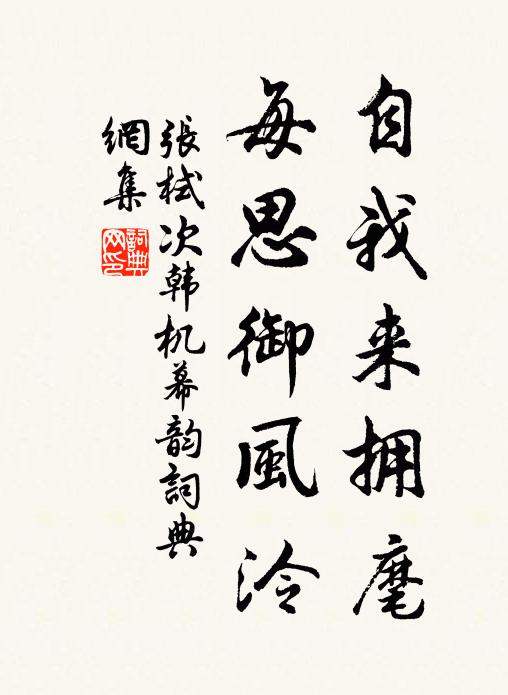 自我来拥麾
每思御風泠
張栻次韩机幕韵詞典
網集
詞典
网印